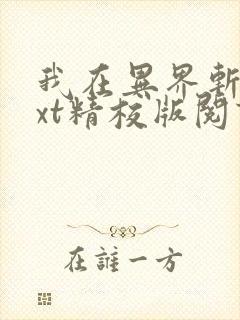 我在異界斬
xt精校版閱
在誰一方